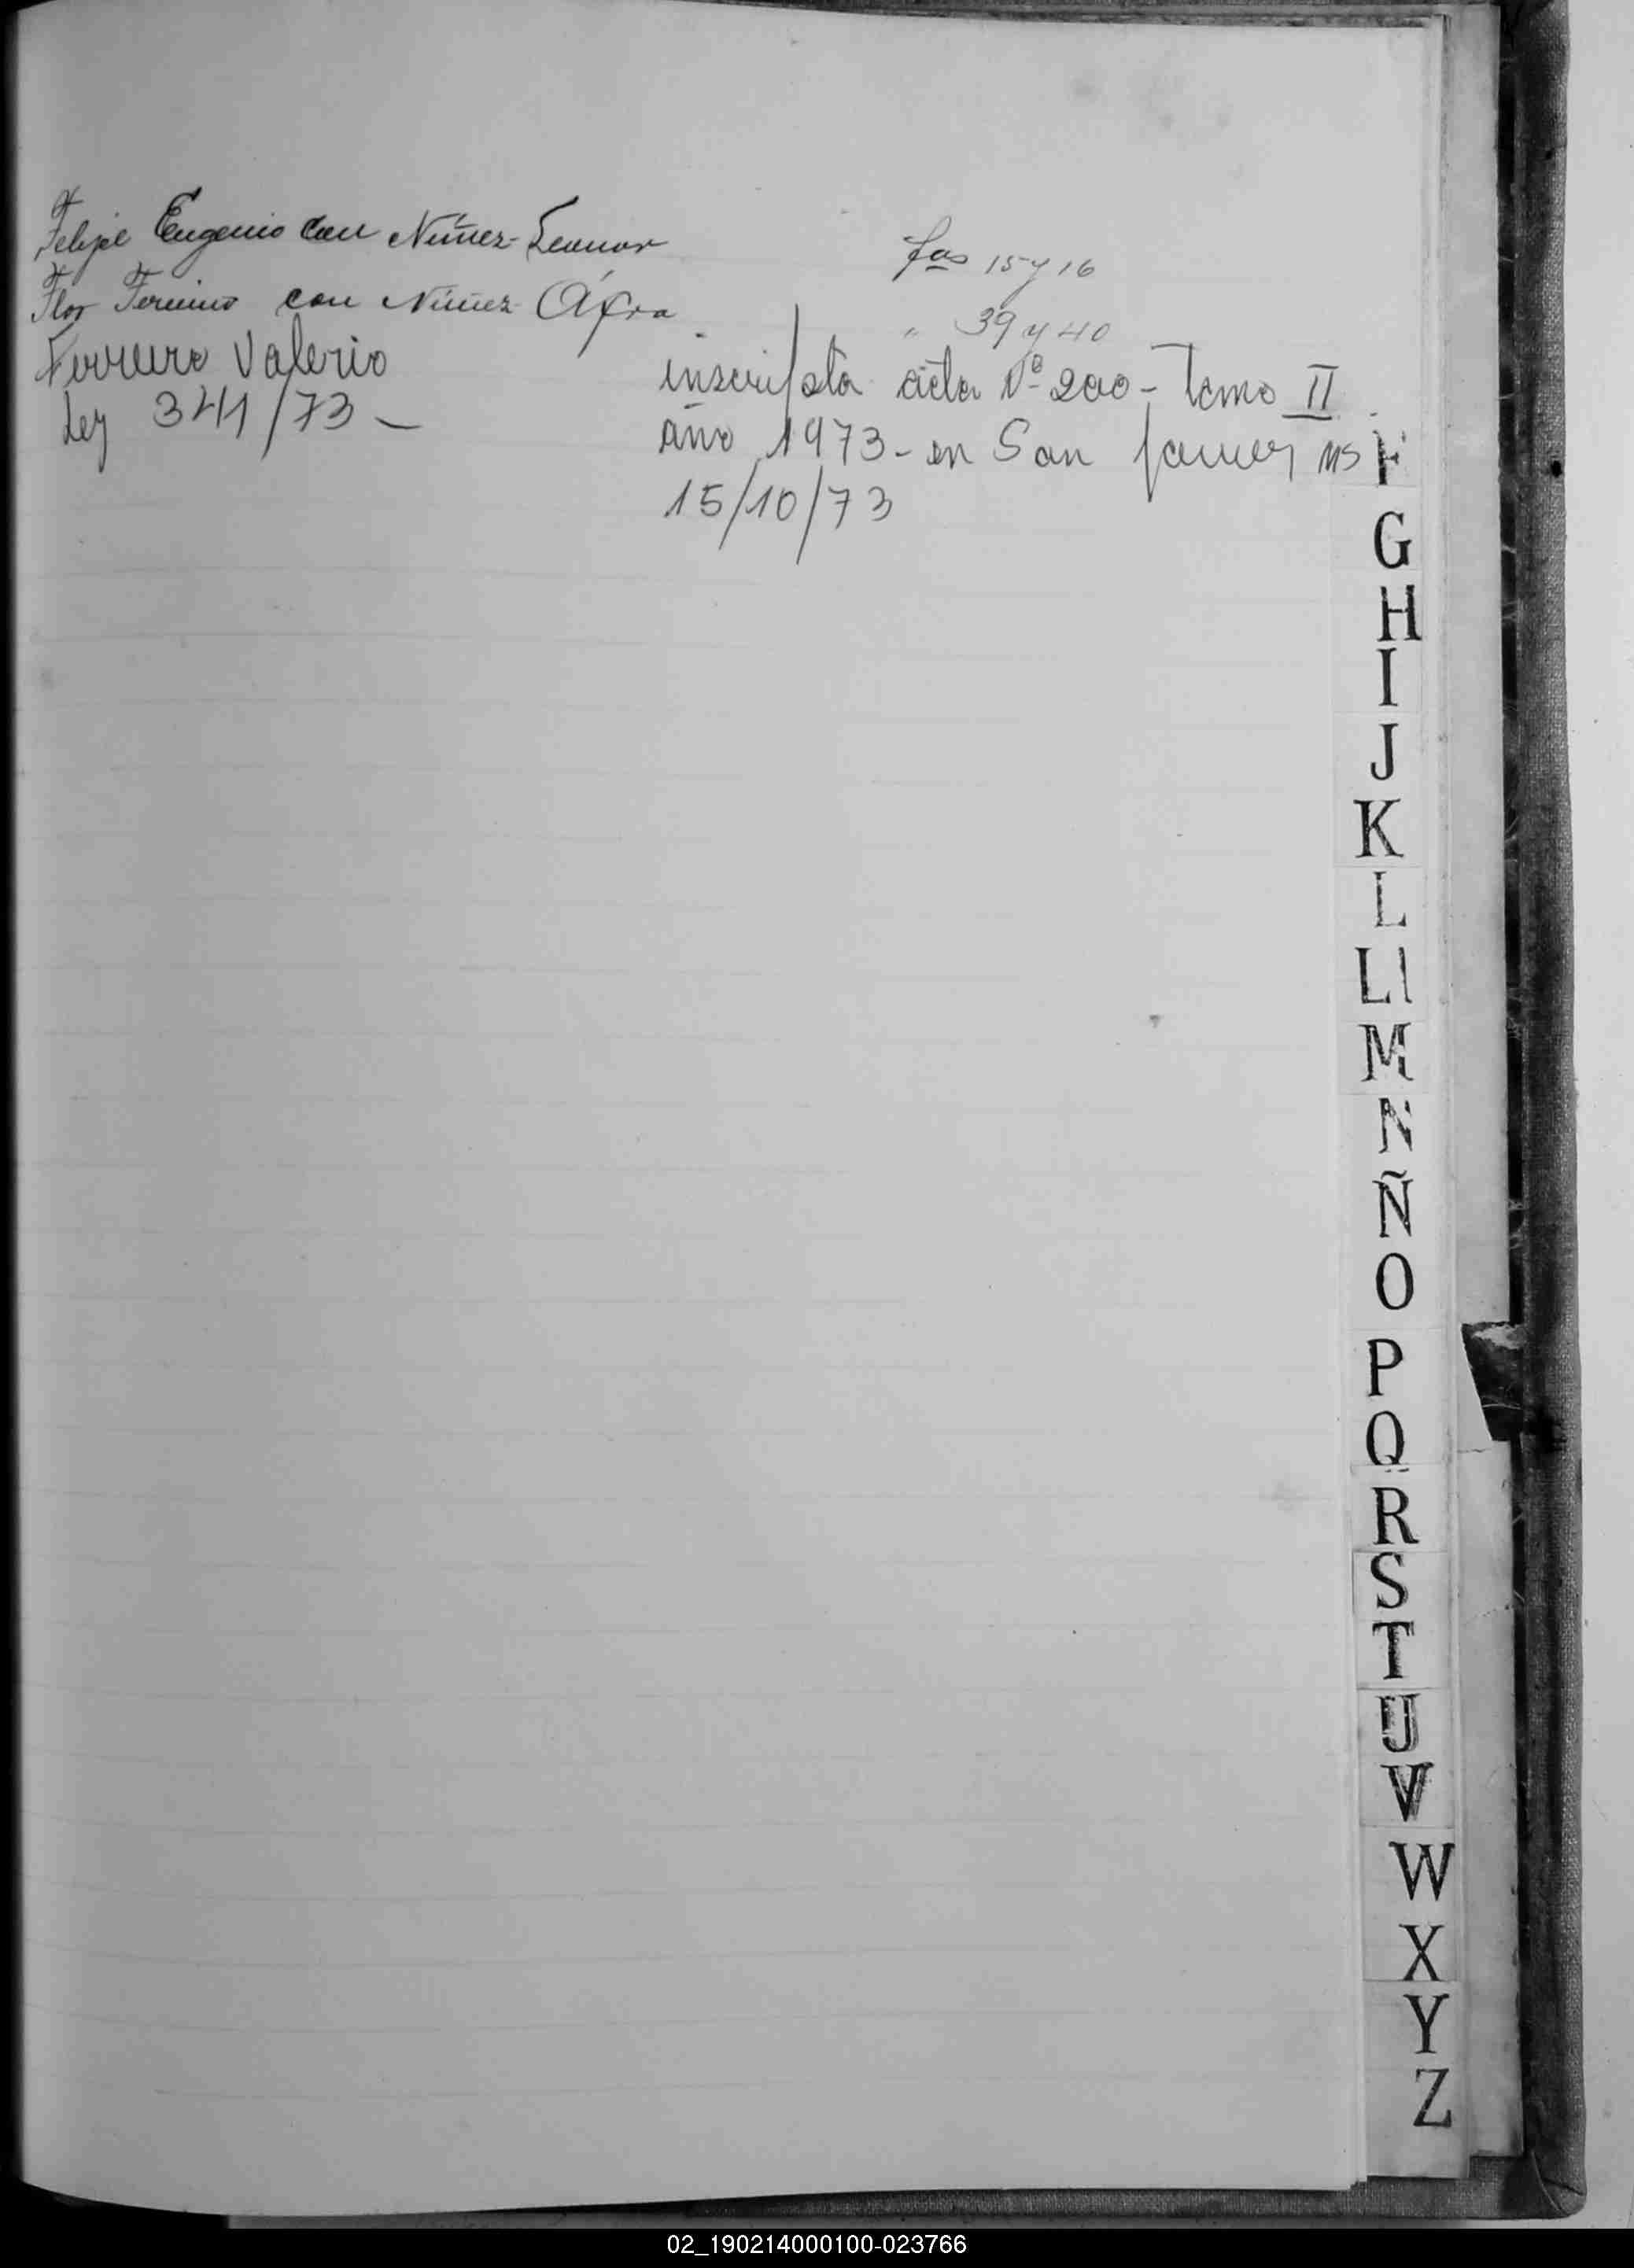 Felipe Eugenio con Núñez Leonor fas 15 y 16
Flor Fermino con Núñez Áfra " 39 y 40
Ferreiro Valerio
Ley 341/73 -
inscripta acta Nº 200 - Tomo II
año 1973 - en San Javier MS
15/10/73
F
G
H
I
J
K
L
Ll
M
N
Ñ
O
P
Q
R
S
T
U
V
W
X
Y
Z
02_190214000100-023766